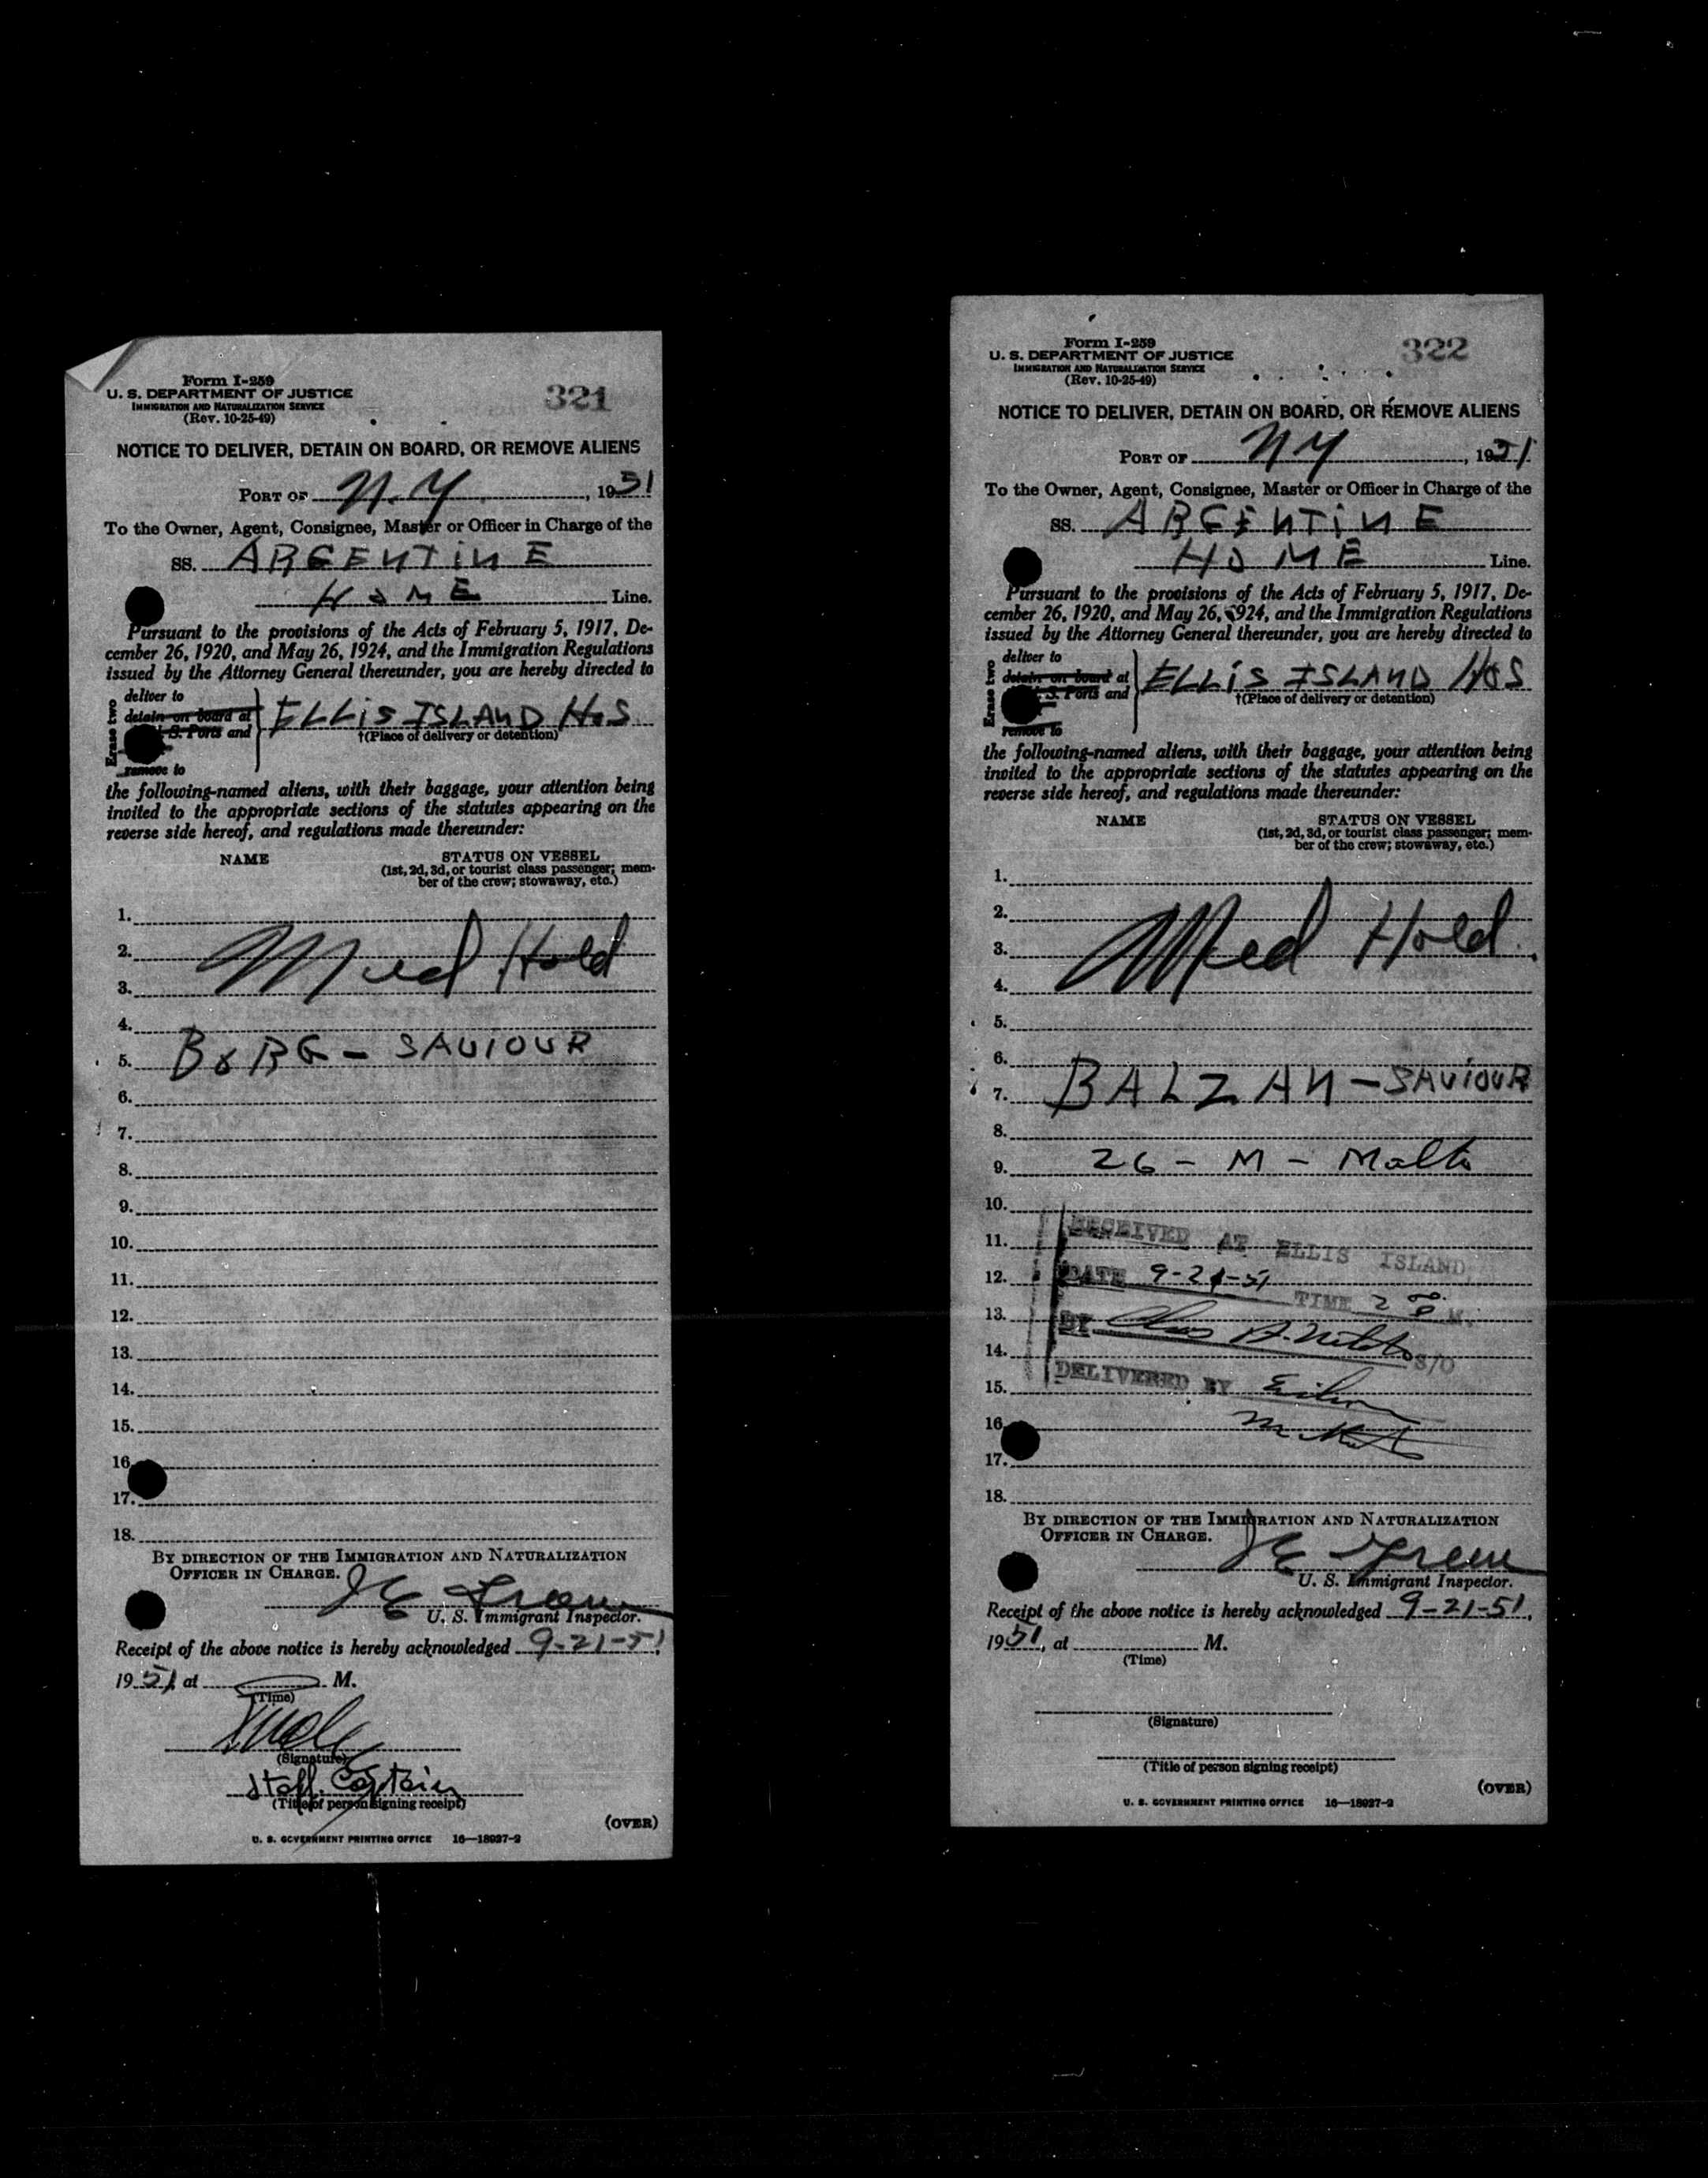 Form I-259
U. S. DEPARTMENT OF JUSTICE
IMMIGRATION AND NATURALIZATION SERVICE
(Rev. 10-25-49)
321
NOTICE TO DELIVER, DETAIN ON BOARD, OR REMOVE ALIENS
PORT OF N.Y., 1951
To the Owner, Agent, Consignee, Master or Officer in Charge of the
SS. ARGENTINE
HOME Line.
Pursuant to the provisions of the Acts of February 5, 1917, De-
cember 26, 1920, and May 26, 1924, and the Immigration Regulations
issued by the Attorney General thereunder, you are hereby directed to
Erase two
deliver to
detain on board at
S. Ports and
remove to
ELLIS ISLAND HOS
†(Place of delivery or detention)
the following-named aliens, with their baggage, your attention being
invited to the appropriate sections of the statutes appearing on the
reverse side hereof, and regulations made thereunder:
NAME STATUS ON VESSEL
(1st, 2d, 3d, or tourist class passenger; mem-
ber of the crew; stowaway, etc.)
1.
2. Med Hold
3.
4.
5. BORG - SAVIOUR
6.
7.
8.
9.
10.
11.
12.
13.
14.
15.
16.
17.
18.
BY DIRECTION OF THE IMMIGRATION AND NATURALIZATION
OFFICER IN CHARGE.
J E Greene
U. S. Immigrant Inspector.
Receipt of the above notice is hereby acknowledged 9-21-51,
1951, at M.
(Time)
(Signature)
Staff Captain
(Title of person signing receipt)
(OVER)
U. S. GOVERNMENT PRINTING OFFICE 16—18927-2
Form I-259
U. S. DEPARTMENT OF JUSTICE
IMMIGRATION AND NATURALIZATION SERVICE
(Rev. 10-25-49)
322
NOTICE TO DELIVER, DETAIN ON BOARD, OR REMOVE ALIENS
PORT OF N Y, 1951
To the Owner, Agent, Consignee, Master or Officer in Charge of the
SS. ARGENTINE
HOME Line.
Pursuant to the provisions of the Acts of February 5, 1917, De-
cember 26, 1920, and May 26, 1924, and the Immigration Regulations
issued by the Attorney General thereunder, you are hereby directed to
Erase two
deliver to
detain on board at
S. Ports and
remove to
ELLIS ISLAND HOS
†(Place of delivery or detention)
the following-named aliens, with their baggage, your attention being
invited to the appropriate sections of the statutes appearing on the
reverse side hereof, and regulations made thereunder:
NAME STATUS ON VESSEL
(1st, 2d, 3d, or tourist class passenger; mem-
ber of the crew; stowaway, etc.)
1.
2.
3. Med Hold
4.
5.
6.
7. BALZAN - SAVIOUR
8.
9. 26 - M - Malta
10.
11. RECEIVED AT ELLIS ISLAND
12. DATE 9-21-51 TIME 2 00 P M.
13. BY Chas A. S/O
14.
15. DELIVERED BY
16.
17.
18.
BY DIRECTION OF THE IMMIGRATION AND NATURALIZATION
OFFICER IN CHARGE.
J E Greene
U. S. Immigrant Inspector.
Receipt of the above notice is hereby acknowledged 9-21-51,
1951, at M.
(Time)
(Signature)
(Title of person signing receipt)
(OVER)
U. S. GOVERNMENT PRINTING OFFICE 16—18927-2